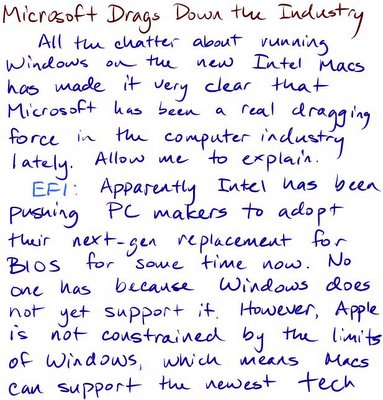 Microsoft Drags Down the Industry
All the chatter about running
Windows on the new Intel Macs
has made it very clear that
Microsoft has been a real dragging
force in the computer industry
lately. Allow me to explain.
EFI: Apparently Intel has been
pushing PC makers to adopt
their next-gen replacement for
BIOS for some time now. No
one has because Windows does
not yet support it. However, Apple
is not constrained by the limits
of Windows, which means Macs
can support the newest tech